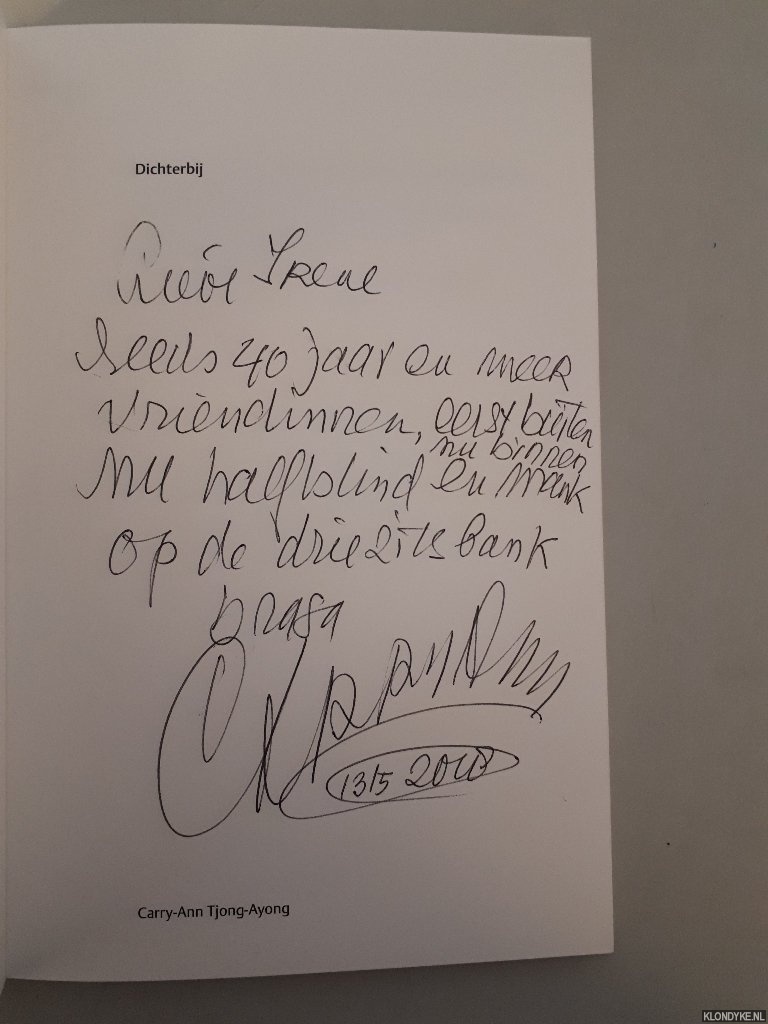 Dichterbij
Lieve Irene
Reeds 40 jaar en meer
vriendinnen, eerst buiten
nu binnen
nu halfblind en mank
op de driezitsbank
brasa
Carry Ann
13/5 2018
Carry-Ann Tjong-Ayong
KLONDYKE.NL